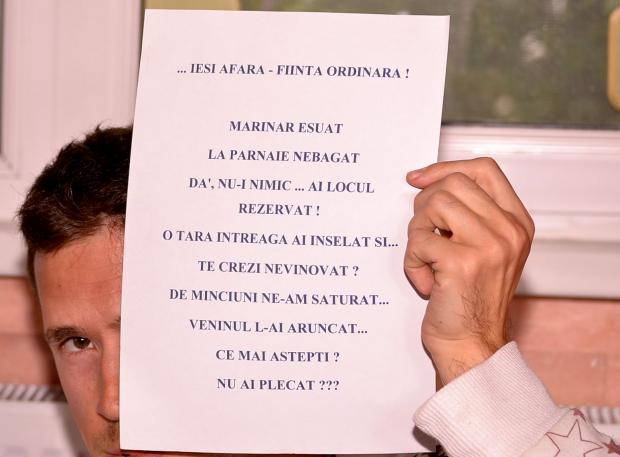 ... IESI AFARA - FIINTA ORDINARA !
MARINAR ESUAT
LA PARNAIE NEBAGAT
DA', NU-I NIMIC ... AI LOCUL
REZERVAT !
O TARA INTREAGA AI INSELAT SI...
TE CREZI NEVINOVAT ?
DE MINCIUNI NE-AM SATURAT...
VENINUL L-AI ARUNCAT...
CE MAI ASTEPTI ?
NU AI PLECAT ???